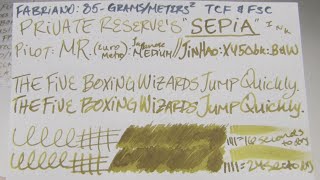 FABRIANO: 85-GRAMS/METERS² TCF & FSC
PRIVATE RESERVE'S "SEPIA" INK
PILOT: MR. (EURO METRO) JAPANESE MEDIUM // JINHAO: X450bk: B&W
THE FIVE BOXING WIZARDS JUMP QUICKLY.
THE FIVE BOXING WIZARDS JUMP QUICKLY.
= 16 seconds to dry
= 24 sec to dry